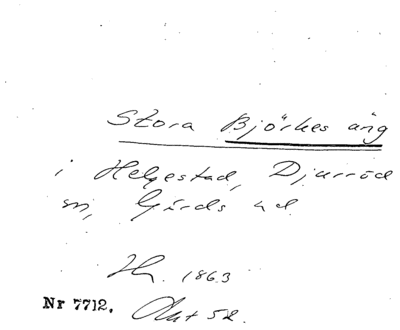 Stora Björkes äng
i Helgestad, Djurröd
sn, Gärds hd
1863
Nr 7712. Akt 52.